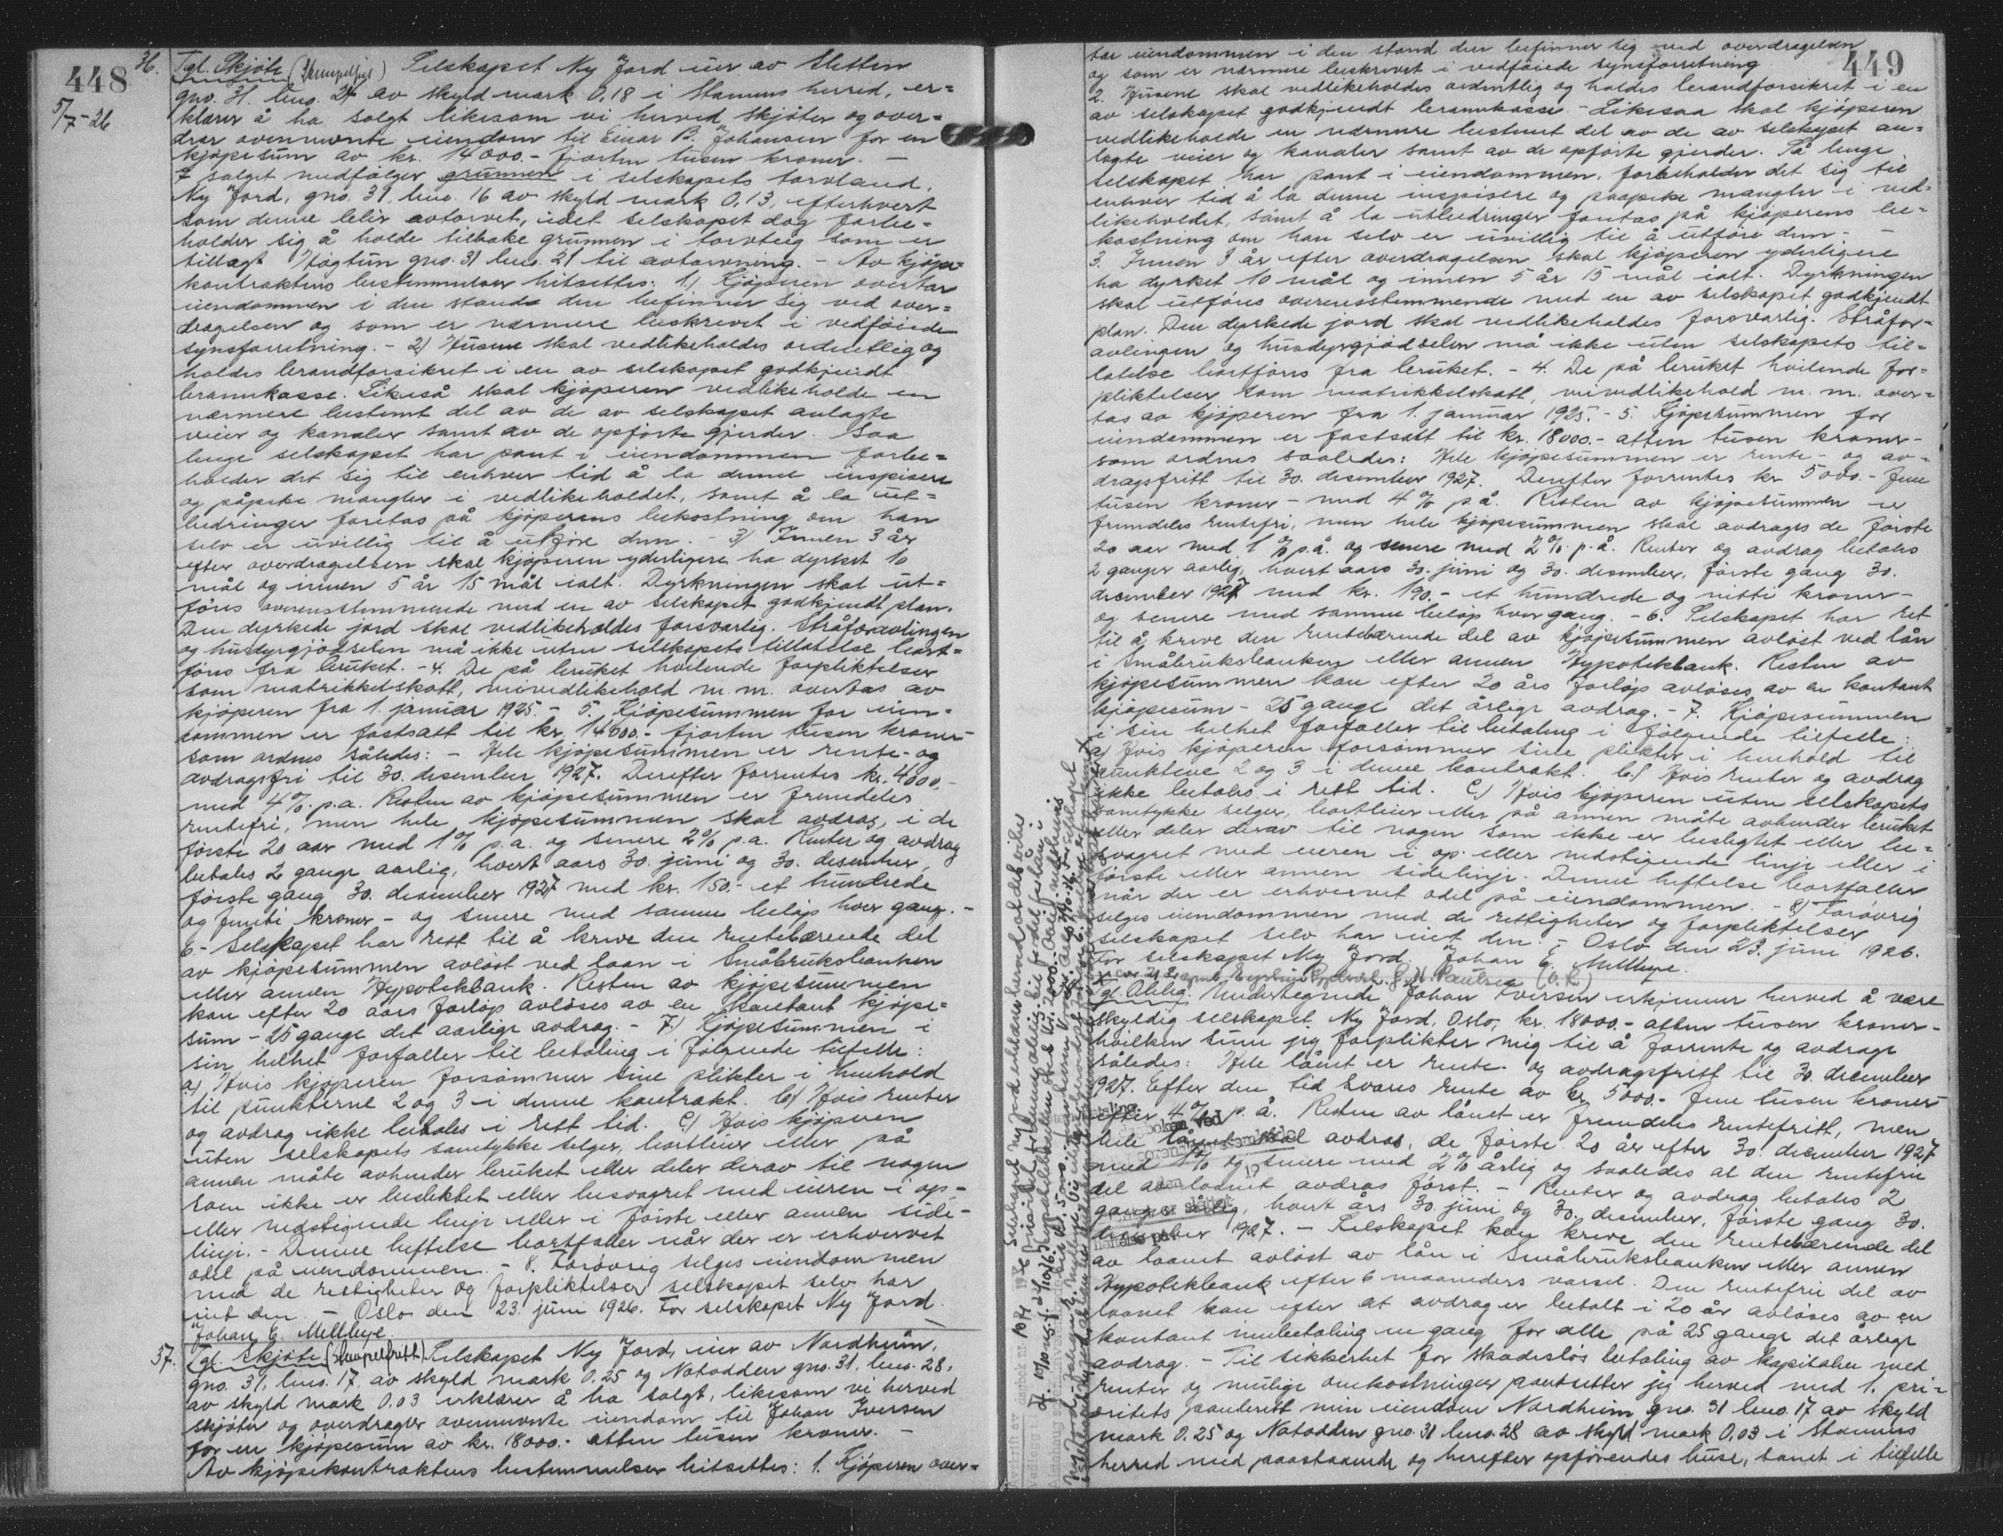 448
5/7-26
36. Tgl. Skjøte (stempelfrit) Selskapet Ny Jord eier av Sletten
gno. 31. bno. 24 av skyld mark 0,18 i Stamnes herred, er=
klærer å ha solgt likesom vi herved skjøter og over=
drar ovennevnte eiendom til Einar B. Johansen for en
kjøpesum av kr. 14000.- fjorten tusen kroner. -
I salget medfølger grunnen i selskapets torvland,
Ny Jord, gno. 31 bno. 16 av skyld mark 0,13, efterhvert
som denne blir avtorvet, idet selskapet dog forbe=
holder sig å holde tilbake grunnen i torvteig som er
tillagt Høgtun gno. 31 bno. 21 til avtorvning. - Av kjøpe=
kontraktens bestemmelser hitsettes: 1) Kjøperen overtar
eiendommen i den stand den befinner sig ved over=
dragelsen og som er nærmere beskrevet i vedføiede
synsforretning. - 2) Husene skal vedlikeholdes ordentlig og
holdes brandforsikret i en av selskapet godkjendt
brannkasse. Likeså skal kjøperen vedlikeholde en
nærmere bestemt del av de av selskapet anlagte
veier og kanaler samt av de opførte gjerder. Saa
lenge selskapet har pant i eiendommen forbe=
holder det sig til enhver tid å la denne inspisere
og påpeke mangler i vedlikeholdet, samt å la ut=
bedringer foretas på kjøperens bekostning om han
selv er uvillig til å utføre dem. - 3) Innen 3 år
efter overdragelsen skal kjøperen yderligere ha dyrket 10
mål og innen 5 år 15 mål ialt. Dyrkningen skal ut=
føres overensstemmende med en av selskapet godkjendt plan.
Den dyrkede jord skal vedlikeholdes forsvarlig. Stråforavlingen
og husdyrgjødselen må ikke uten selskapets tillatelse bort=
føres fra bruket. - 4. De på bruket hvilende forpliktelser
som matrikkelskatt, veivedlikehold m.m. overtas av
kjøperen fra 1. januar 1925. - 5. Kjøpesummen for eien=
dommen er fastsatt til kr. 14000.- fjorten tusen kroner -
som ordnes således: - Hele kjøpesummen er rente- og
avdragsfri til 30. desember 1927. Derefter forrentes kr. 4000.-
med 4 % p.a. Resten av kjøpesummen er fremdeles
rentefri, men hele kjøpesummen skal avdrag, i de
første 20 aar med 1 % p.a. og senere 2 % p.a. Renter og avdrag
betales 2 gange aarlig, hvert aars 30. juni og 30. desember,
første gang 30. desember 1927 med kr. 150.- et hundrede
og femti kroner - og senere med samme beløp hver gang. -
6. - Selskapet har rett til å kreve den rentebærende del
av kjøpesummen avløst ved laan i Småbruksbanken
eller annen Hypotekbank. Resten av kjøpesummen
kan efter 20 aars forløp avløses av en kontant kjøpe=
sum - 25 gange det aarlige avdrag. - 7.) Kjøpesummen i
sin helhet forfaller til betaling i følgende tilfelle:
a) Hvis kjøperen forsømmer sine plikter i henhold
til punkterne 2 og 3 i denne kontrakt. b) Hvis renter
og avdrag ikke betales i rett tid. c) Hvis kjøperen
uten selskapets samtykke selger, bortleier eller på
annen måte avhender bruket eller deler derav til nogen
som ikke er beslektet eller besvogret med eieren i op-
eller nedstigende linje eller i første eller annen side=
linje. - Denne heftelse bortfaller når der er erhvervet
odel på eiendommen. - 8. Forøvrig selges eiendommen
med de rettigheter og forpliktelser selskapet selv har
eiet den. - Oslo den 23. juni 1926. For selskapet Ny Jord.
Johan E. Mellbye.
37. Tgl. Skjøte (stempelfritt) Selskapet Ny Jord, eier av Nordheim,
gno. 31, bno. 17 av skyld mark 0.25 og Natodden gno. 31, bno. 28,
av skyld mark 0,03 erklærer å ha solgt, likesom vi herved
skjøter og overdrager ovennevnte eiendom til Johan Iversen
for en kjøpesum av kr. 18000.- atten tusen kroner. -
Av kjøpekontraktens bestemmelser hitsettes: 1. Kjøperen over=
449
tar eiendommen i den stand den befinner sig ved overdragelsen
og som er nærmere beskrevet i vedføiede synsforretning
2. Husene skal vedlikeholdes ordentlig og holdes brandforsikret i en
av selskapet godkjendt brannkasse - Likesaa skal kjøperen
vedlikeholde en nærmere bestemt del av de av selskapet an=
lagte veier og kanaler samt av de opførte gjerder. Så lenge
selskapet har pant i eiendommen, forbeholder det sig til
enhver tid å la denne inspisere og paapeke mangler i ved=
likeholdet, samt å la utbedringer foretas på kjøperens be=
kostning om han selv er uvillig til å utføre dem. -
3. Innen 3 år efter overdragelsen skal kjøperen yderligere
ha dyrket 10 mål og innen 5 år 15 mål ialt. Dyrkningen
skal utføres overensstemmende med en av selskapet godkjendt
plan. Den dyrkede jord skal vedlikeholdes forsvarlig. Stråfor=
avlingen og husdyrgjødselen må ikke uten selskapets til=
latelse bortføres fra bruket. - 4. De på bruket hvilende for=
pliktelser som matrikkelskatt, veivedlikehold m. m. over=
tas av kjøperen fra 1. januar 1925. - 5. Kjøpesummen for
eiendommen er fastsatt til kr. 18000.- atten tusen kroner -
som ordnes saaledes: Hele kjøpesummen er rente- og av=
dragsfritt til 30. desember 1927. Derefter forrentes kr 5000.- fem
tusen kroner - med 4 % p.å. Resten av kjøpesummen er
fremdeles rentefri, men hele kjøpesummen skal avdrages de første
20 aar med 1 % p.å. og senere med 2 % p.å. Renter og avdrag betales
2 ganger aarlig, hvert aars 30. juni og 30. desember, første gang 30.
december 1927 med kr. 190.- et hundrede og nitti kroner -
og senere med samme beløp hver gang. - 6. Selskapet har ret
til å kreve den rentebærende del av kjøpesummen avløst ved lån
i Småbruksbanken eller annen Hypotekbank. Resten av
kjøpesummen kan efter 20 års forløp avløses av en kontant
kjøpesum - 25 gange det årlige avdrag. - 7. Kjøpesummen
i sin helhet forfaller til betaling i følgende tilfelle:
a) Hvis kjøperen forsømmer sine plikter i henhold til
punktene 2 og 3 i denne kontrakt. b.) Hvis renter og avdrag
ikke betales i rett tid. c.) Hvis kjøperen uten selskapets
samtykke selger, bortleier eller på annen måte avhender bruket
eller deler derav til nogen som ikke er beslegtet eller be=
svogret med eieren i op- eller nedstigende linje eller i
første eller annen sidelinje. Denne heftelse bortfaller
når der er erhvervet odel på eiendommen. - 8) Forøvrig
selges eiendommen med de rettigheter og forpliktelser
selskapet selv har eiet den. - Oslo den 23. juni 1926.
For selskapet Ny Jord. Johan E. Mellbye.
Tgl. Oblig. Undertegnede Johan Iversen erkjenner herved å være
skyldig selskapet Ny Jord, Oslo, kr. 18000.- atten tusen kroner -
hvilken sum jeg forplikter mig til å forrente og avdrage
således: Hele lånet er rente- og avdragsfritt til 30. december
1927. Efter den tid svares rente av kr. 5000.- fem tusen kroner
efter 4 % p.å. Resten av lånet er fremdeles rentefritt, men
hele lånet skal avdras, de første 20 år efter 30. december 1927
med 1 % og senere med 2 % årlig og saaledes at den rentefrie
del av laanet avdras først. - Renter og avdrag betales 2
gange årlig, hvert års 30. juni og 30. desember, første gang 30.
desember 1927. - Selskapet kan kreve den rentebærende del
av laanet avløst av lån i Småbruksbanken eller annen
Hypotekbank efter 6 maaneders varsel. Den rentefrie del av
laanet kan efter at avdrag er betalt i 20 år avløses av en
kontant innbetaling en gang for alle på 25 gange det årlige
avdrag. - Til sikkerhet for skadesløs betaling av kapitalen med
renter og mulige omkostninger pantsetter jeg herved med 1. pri=
oritets panterett min eiendom Nordheim gno. 31 bno. 17 av skyld
mark 0.25 og Natodden gno. 31 bno. 28 av skyld mark 0,03 i Stamnes
herred med paastaaende og herefter opførendes huse, samt i tilfelle